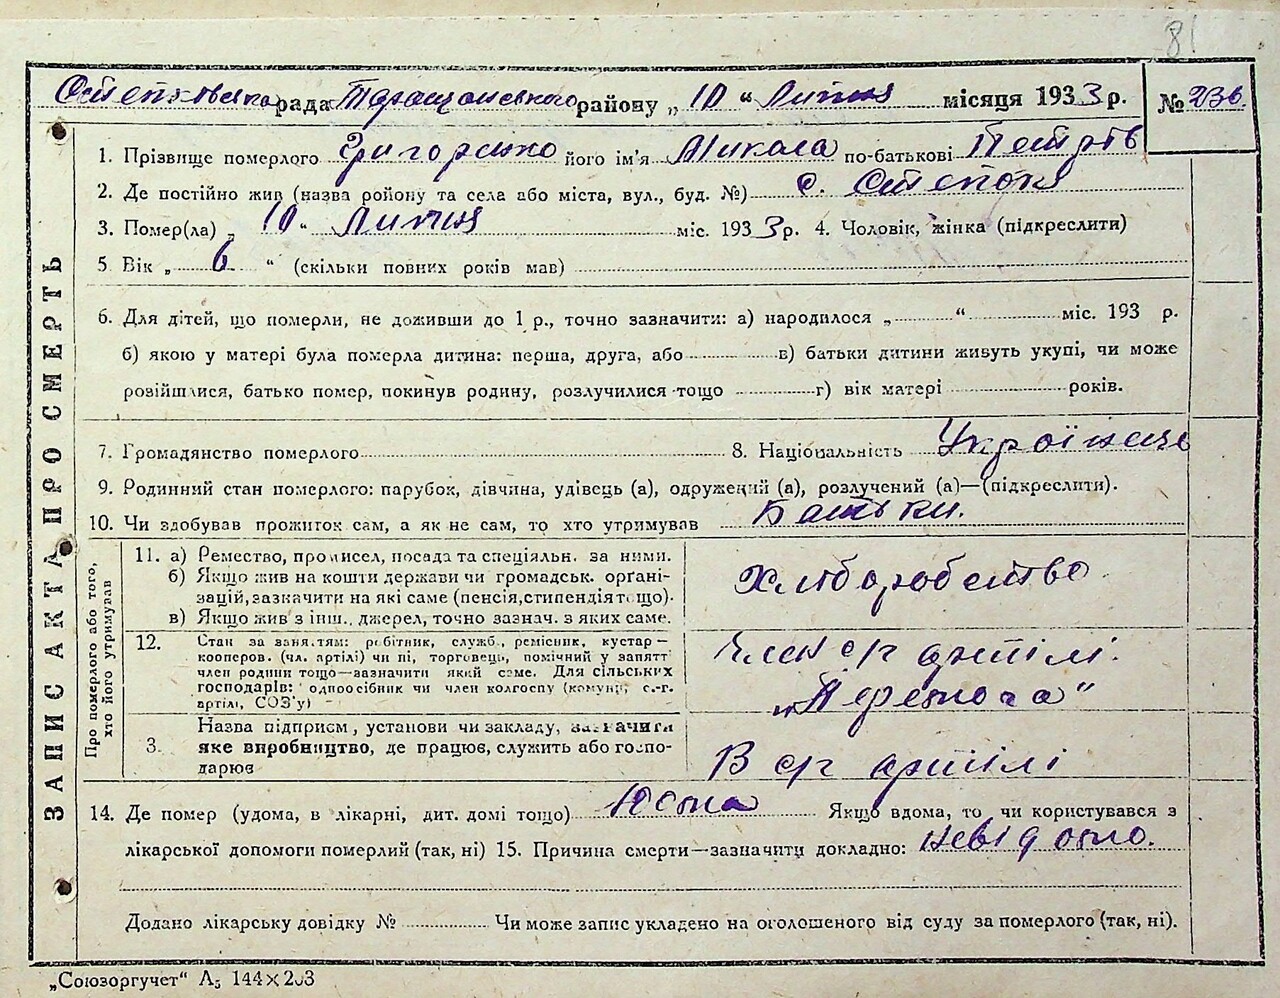 81
Степківська рада Таращанського району „10" Липня місяця 1933 р. № 236
1. Прізвище померлого Григоренко його ім'я Микола по-батькові Петрів
2. Де постійно жив (назва ройону та села або міста, вул., буд. №) с. Степок
3. Помер(ла) „10" Липня міс. 1933 р. 4. Чоловік, жінка (підкреслити)
5 Вік „6" (скільки повних років мав)
6. Для дітей, що померли, не доживши до 1 р., точно зазначити: а) народилося „ " міс. 193 р.
б) якою у матері була померла дитина: перша, друга, або в) батьки дитини живуть укупі, чи може
розійшлися, батько помер, покинув родину, розлучилися тощо г) вік матері років.
7. Громадянство померлого 8. Національність Українець
9. Родинний стан померлого: парубок, дівчина, удівець (а), одружений (а), розлучений (а)—(підкреслити).
10. Чи здобував прожиток сам, а як не сам, то хто утримував Батьки.
ЗАПИС АКТА ПРО СМЕРТЬ
Про померлого або того, хто його утримував
11. а) Ремество, промисел, посада та спеціяльн. за ними.
б) Якщо жив на кошти держави чи громадськ. органі-
зацій, зазначити на які саме (пенсія, стипендія тощо).
в) Якщо жив з інш. джерел, точно зазнач. з яких саме.
Хліборобство
12. Стан за заняттям: робітник, служб., ремісник, кустар—
кооперов. (чл. артілі) чи ні, торговець, помічний у занятт
член родини тощо—зазначити який саме. Для сільських
господарів: одноосібник чи член колгоспу (комуни, с.-г.
артілі, СОЗ'у)
Член с/г артілі.
„Перемога"
3. Назва підприєм, установи чи закладу, зазначити
яке виробництво, де працює, служить або госпо-
дарює
В с/г артілі
14. Де помер (удома, в лікарні, дит. домі тощо) Якщо вдома, то чи користувався з
лікарської допомоги померлий (так, ні) 15. Причина смерти—зазначити докладно: невідомо.
Додано лікарську довідку № Чи може запис укладено на оголошеного від суду за померлого (так, ні).
„Союзоргучет" А5 144×203